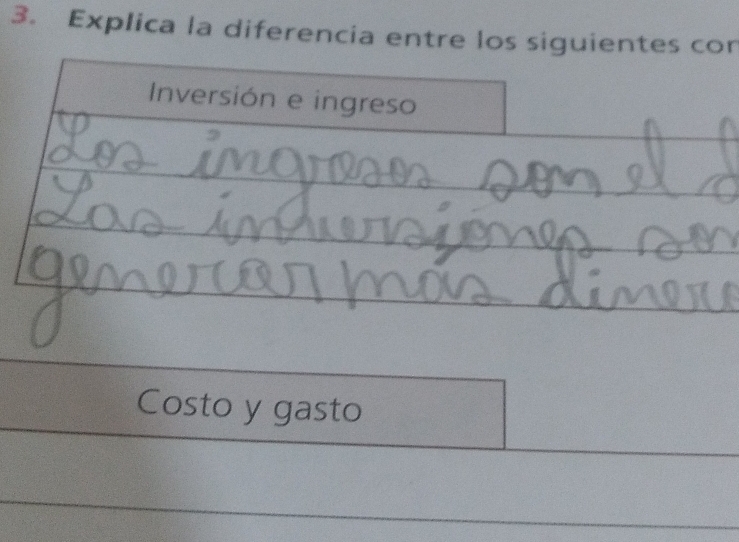 3. Explica la diferencia entre los siguientes con
Inversión e ingreso
Los ingresos son el d
Las indversiones son
genercar mas dinero
Costo y gasto